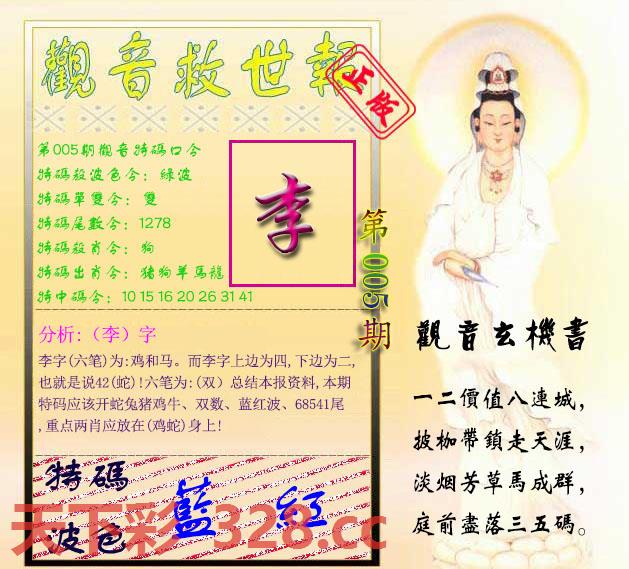 觀音救世報
正版
第005期觀音特碼口令
特碼殺波色令：綠波
特碼單雙令：雙
特碼尾數令：1278
特碼殺肖令：狗
特碼出肖令：猪狗羊馬龍
特中碼令：10 15 16 20 26 31 41
李
第005期
分析:（李）字
李字(六笔)为:鸡和马。而李字上边为四,下边为二,
也就是说42(蛇)!六笔为:(双）总结本报资料,本期
特码应该开蛇兔猪鸡牛、双数、蓝红波、68541尾
,重点两肖应放在(鸡蛇)身上!
特碼
波色
藍 紅
天下彩1328.cc
觀音玄機書
一二價值八連城，
披枷帶鎖走天涯，
淡烟芳草馬成群，
庭前盡落三五碼。